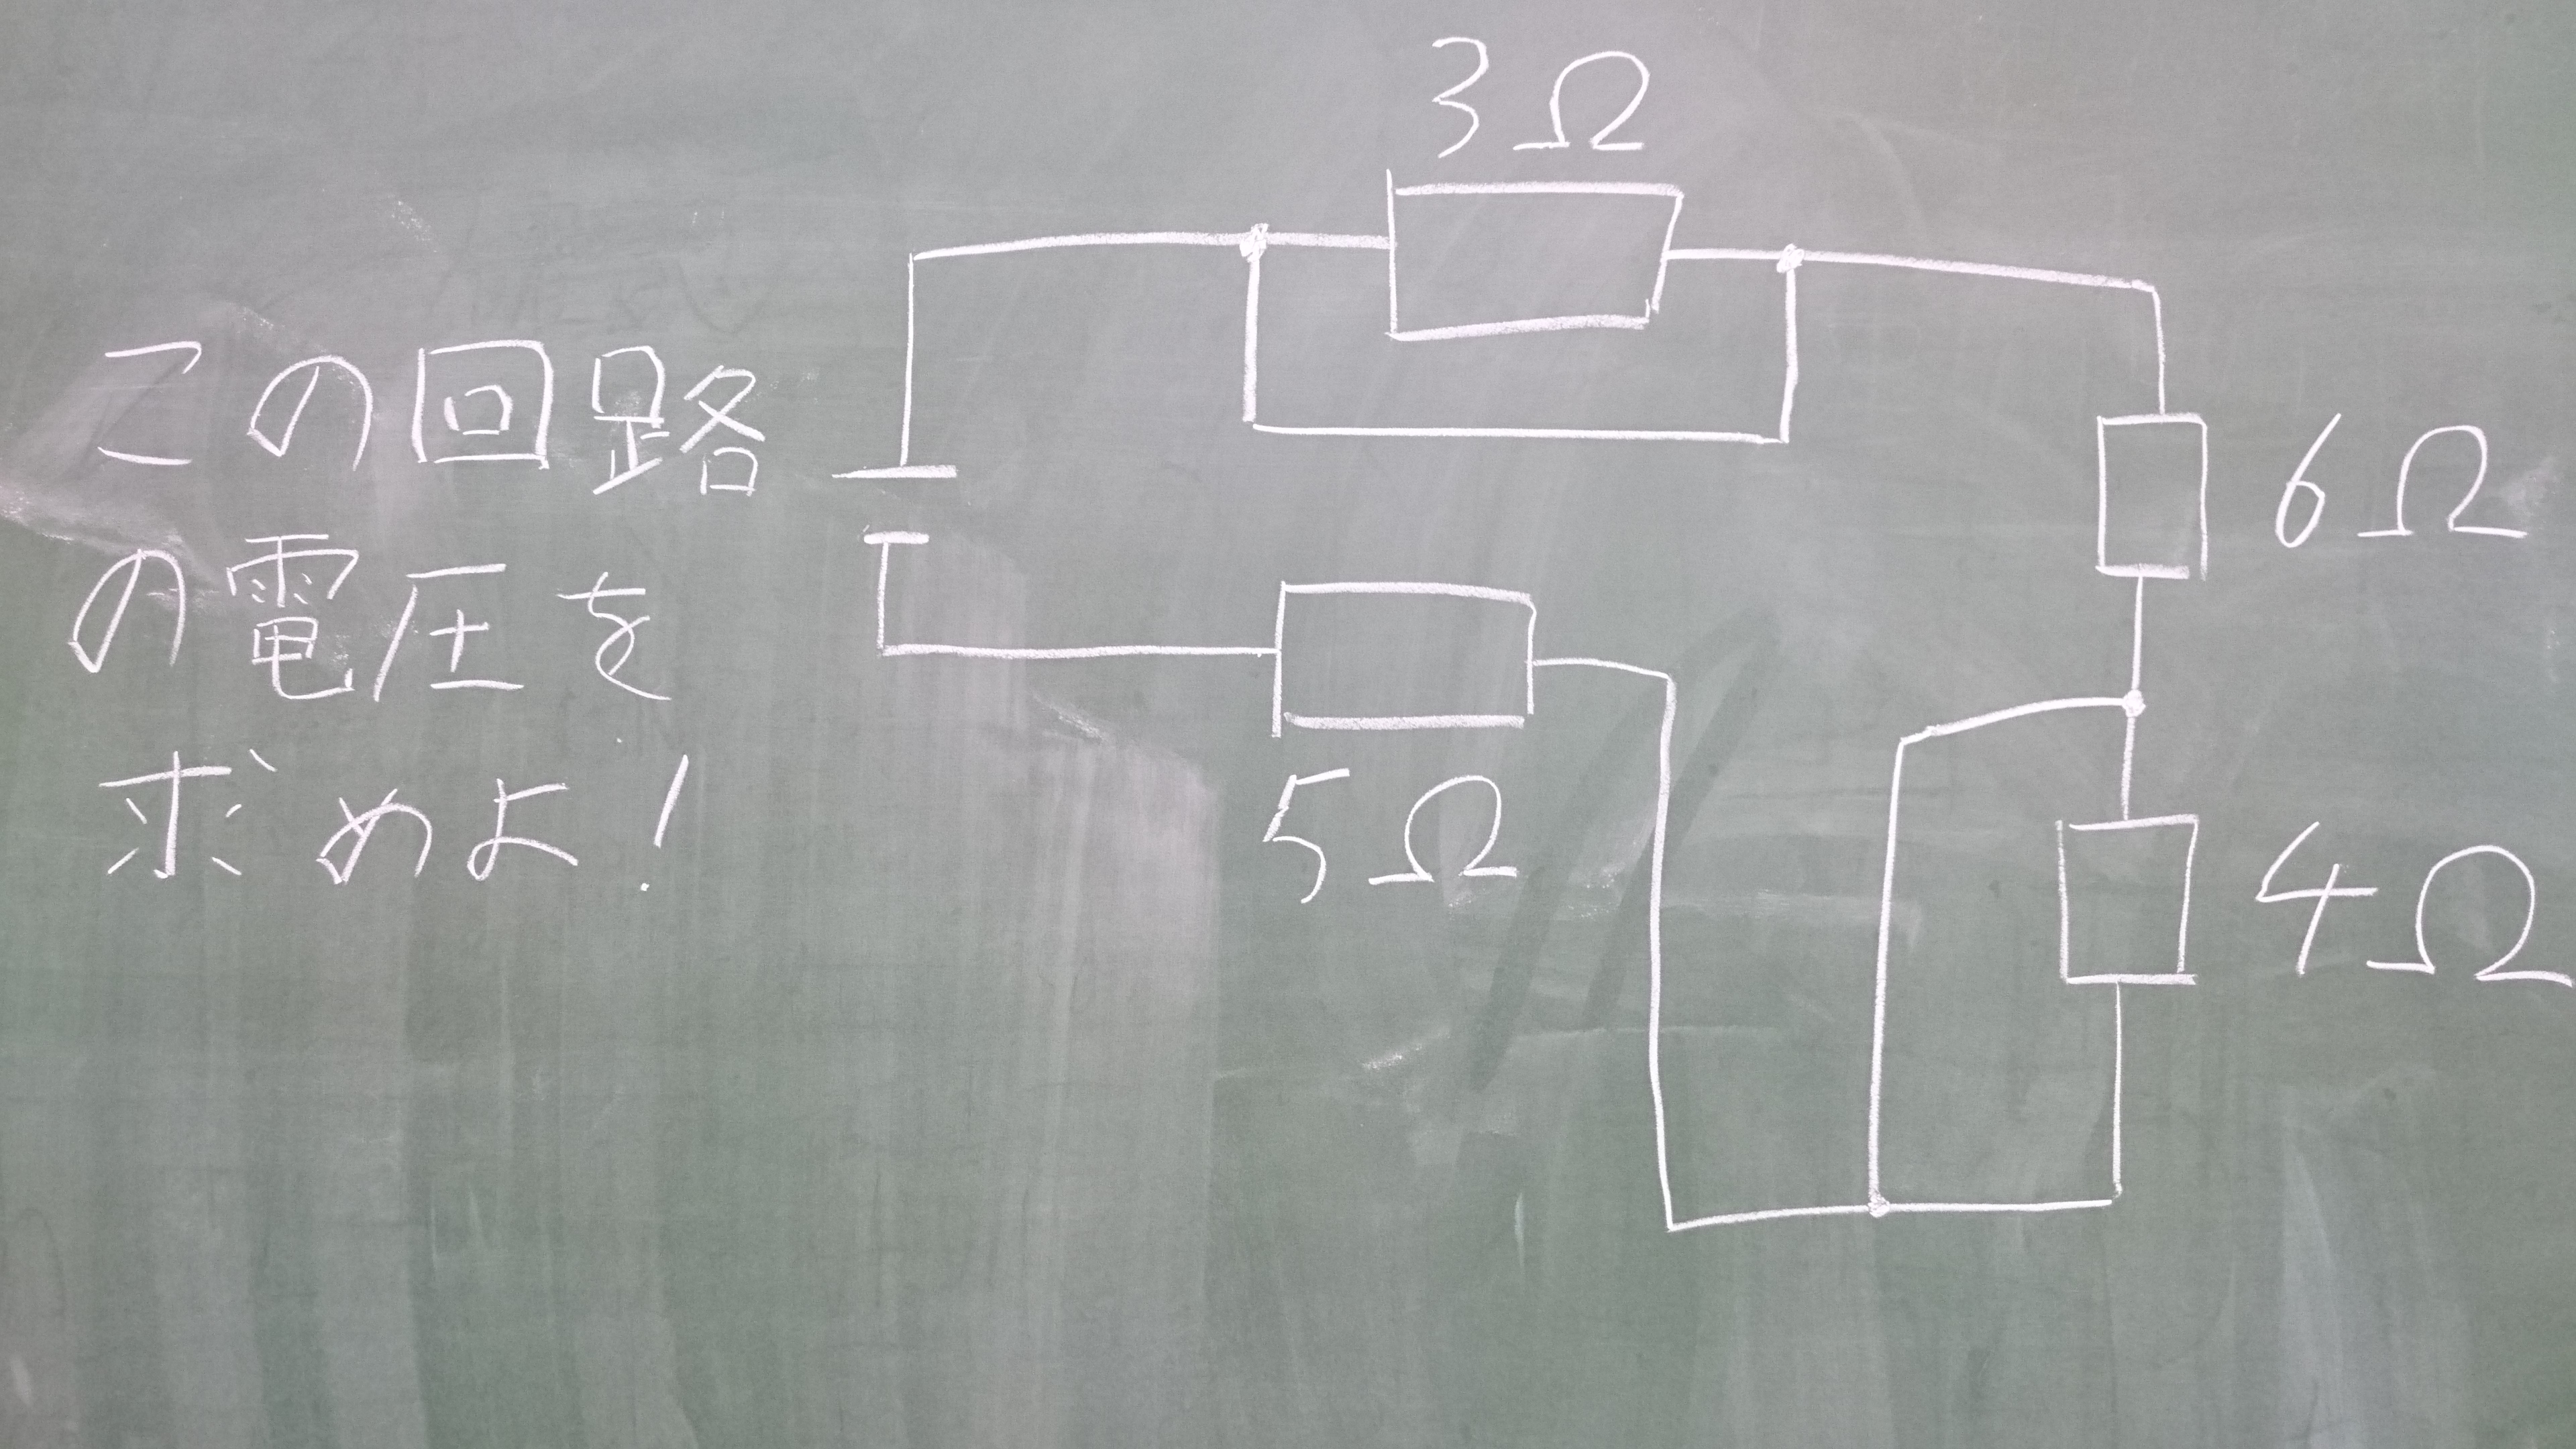 この回路
の電圧を
求めよ!
3Ω
6Ω
5Ω
4Ω